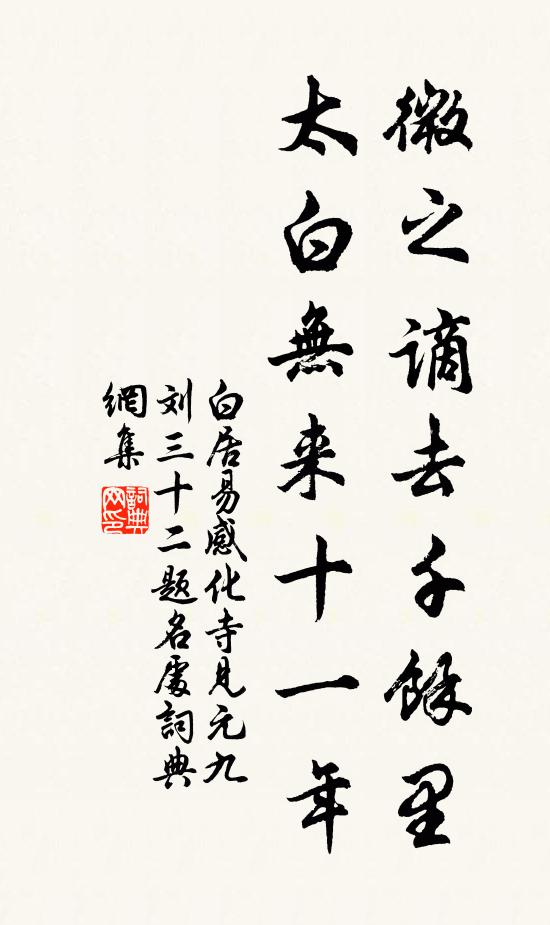 微之謫去千餘里
太白無来十一年
白居易感化寺見元九
刘三十二题名處詞典
網集
詞典网印